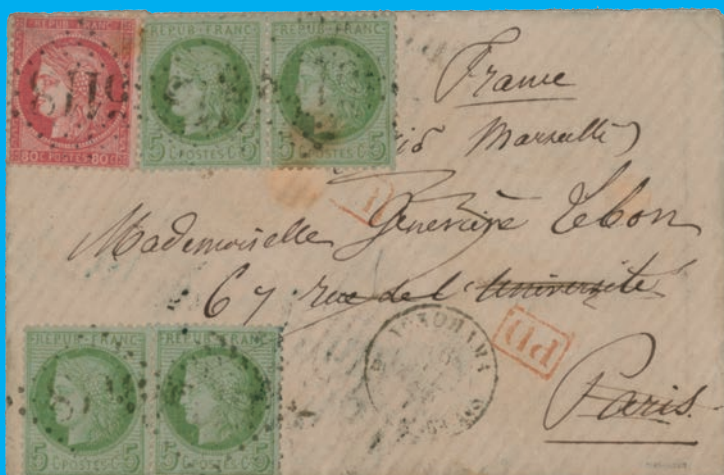 REPUB · FRANC
80 C · POSTES · 80 C
REPUB · FRANC
5 C · POSTES · 5 C
REPUB · FRANC
5 C · POSTES · 5 C
5118
France
Marseille
Mademoiselle Geneviève
67 rue de l'Université
PD
YOKOHAMA
Paris
REPUB · FRANC
5 C · POSTES · 5 C
REPUB · FRANC
5 C · POSTES · 5 C